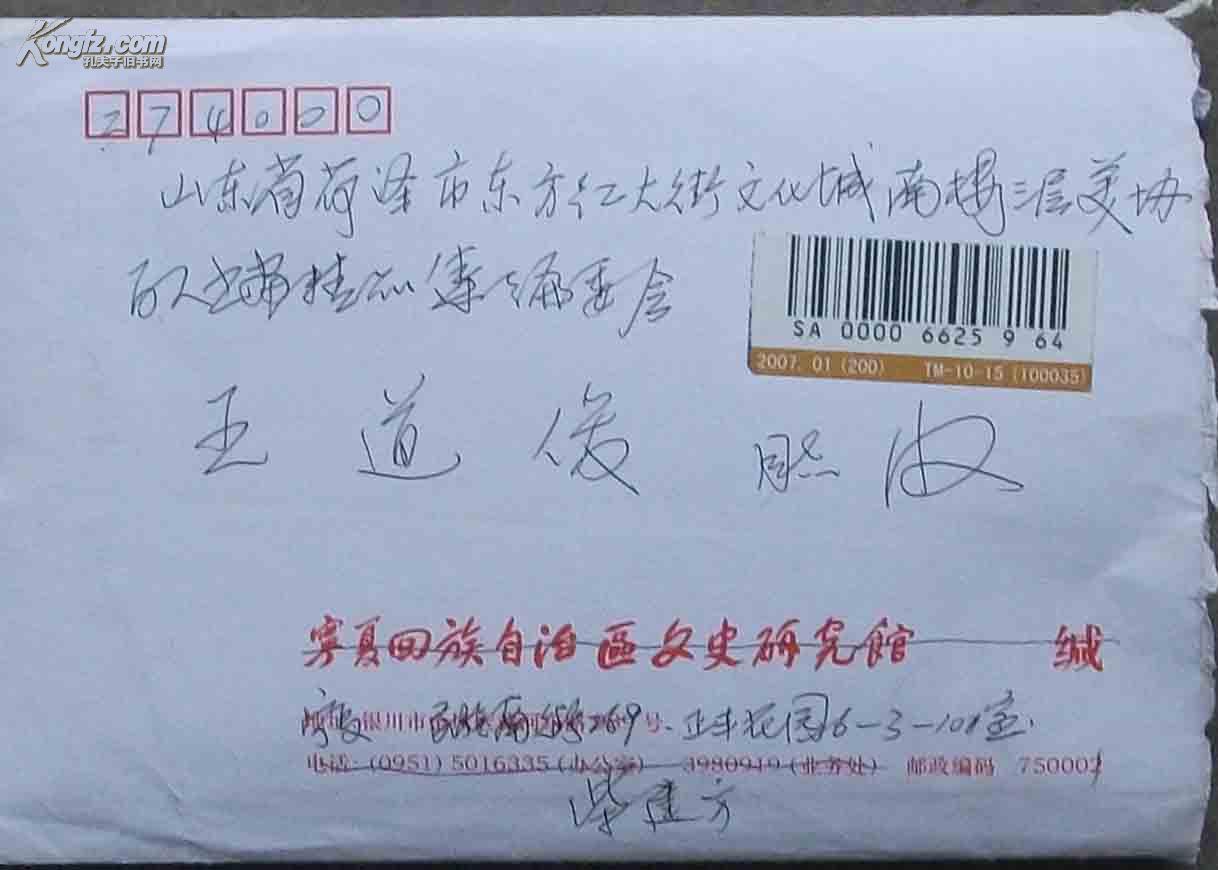 Kongfz.com
孔夫子旧书网
274000
山东省荷泽市东方红大街文化城南楼三层美协
百人书画精品集编委会
SA 0000 6625 9 64
2007.01 (200) TM-10-15 (100035)
王道俊 收
宁夏回族自治區文史研究館 缄
宁夏 银川市 民族南街269号 正丰花园16-3-101室
电话:(0951) 5016335 (办公室) 3980949 (业务处) 邮政编码 750001
柴建方